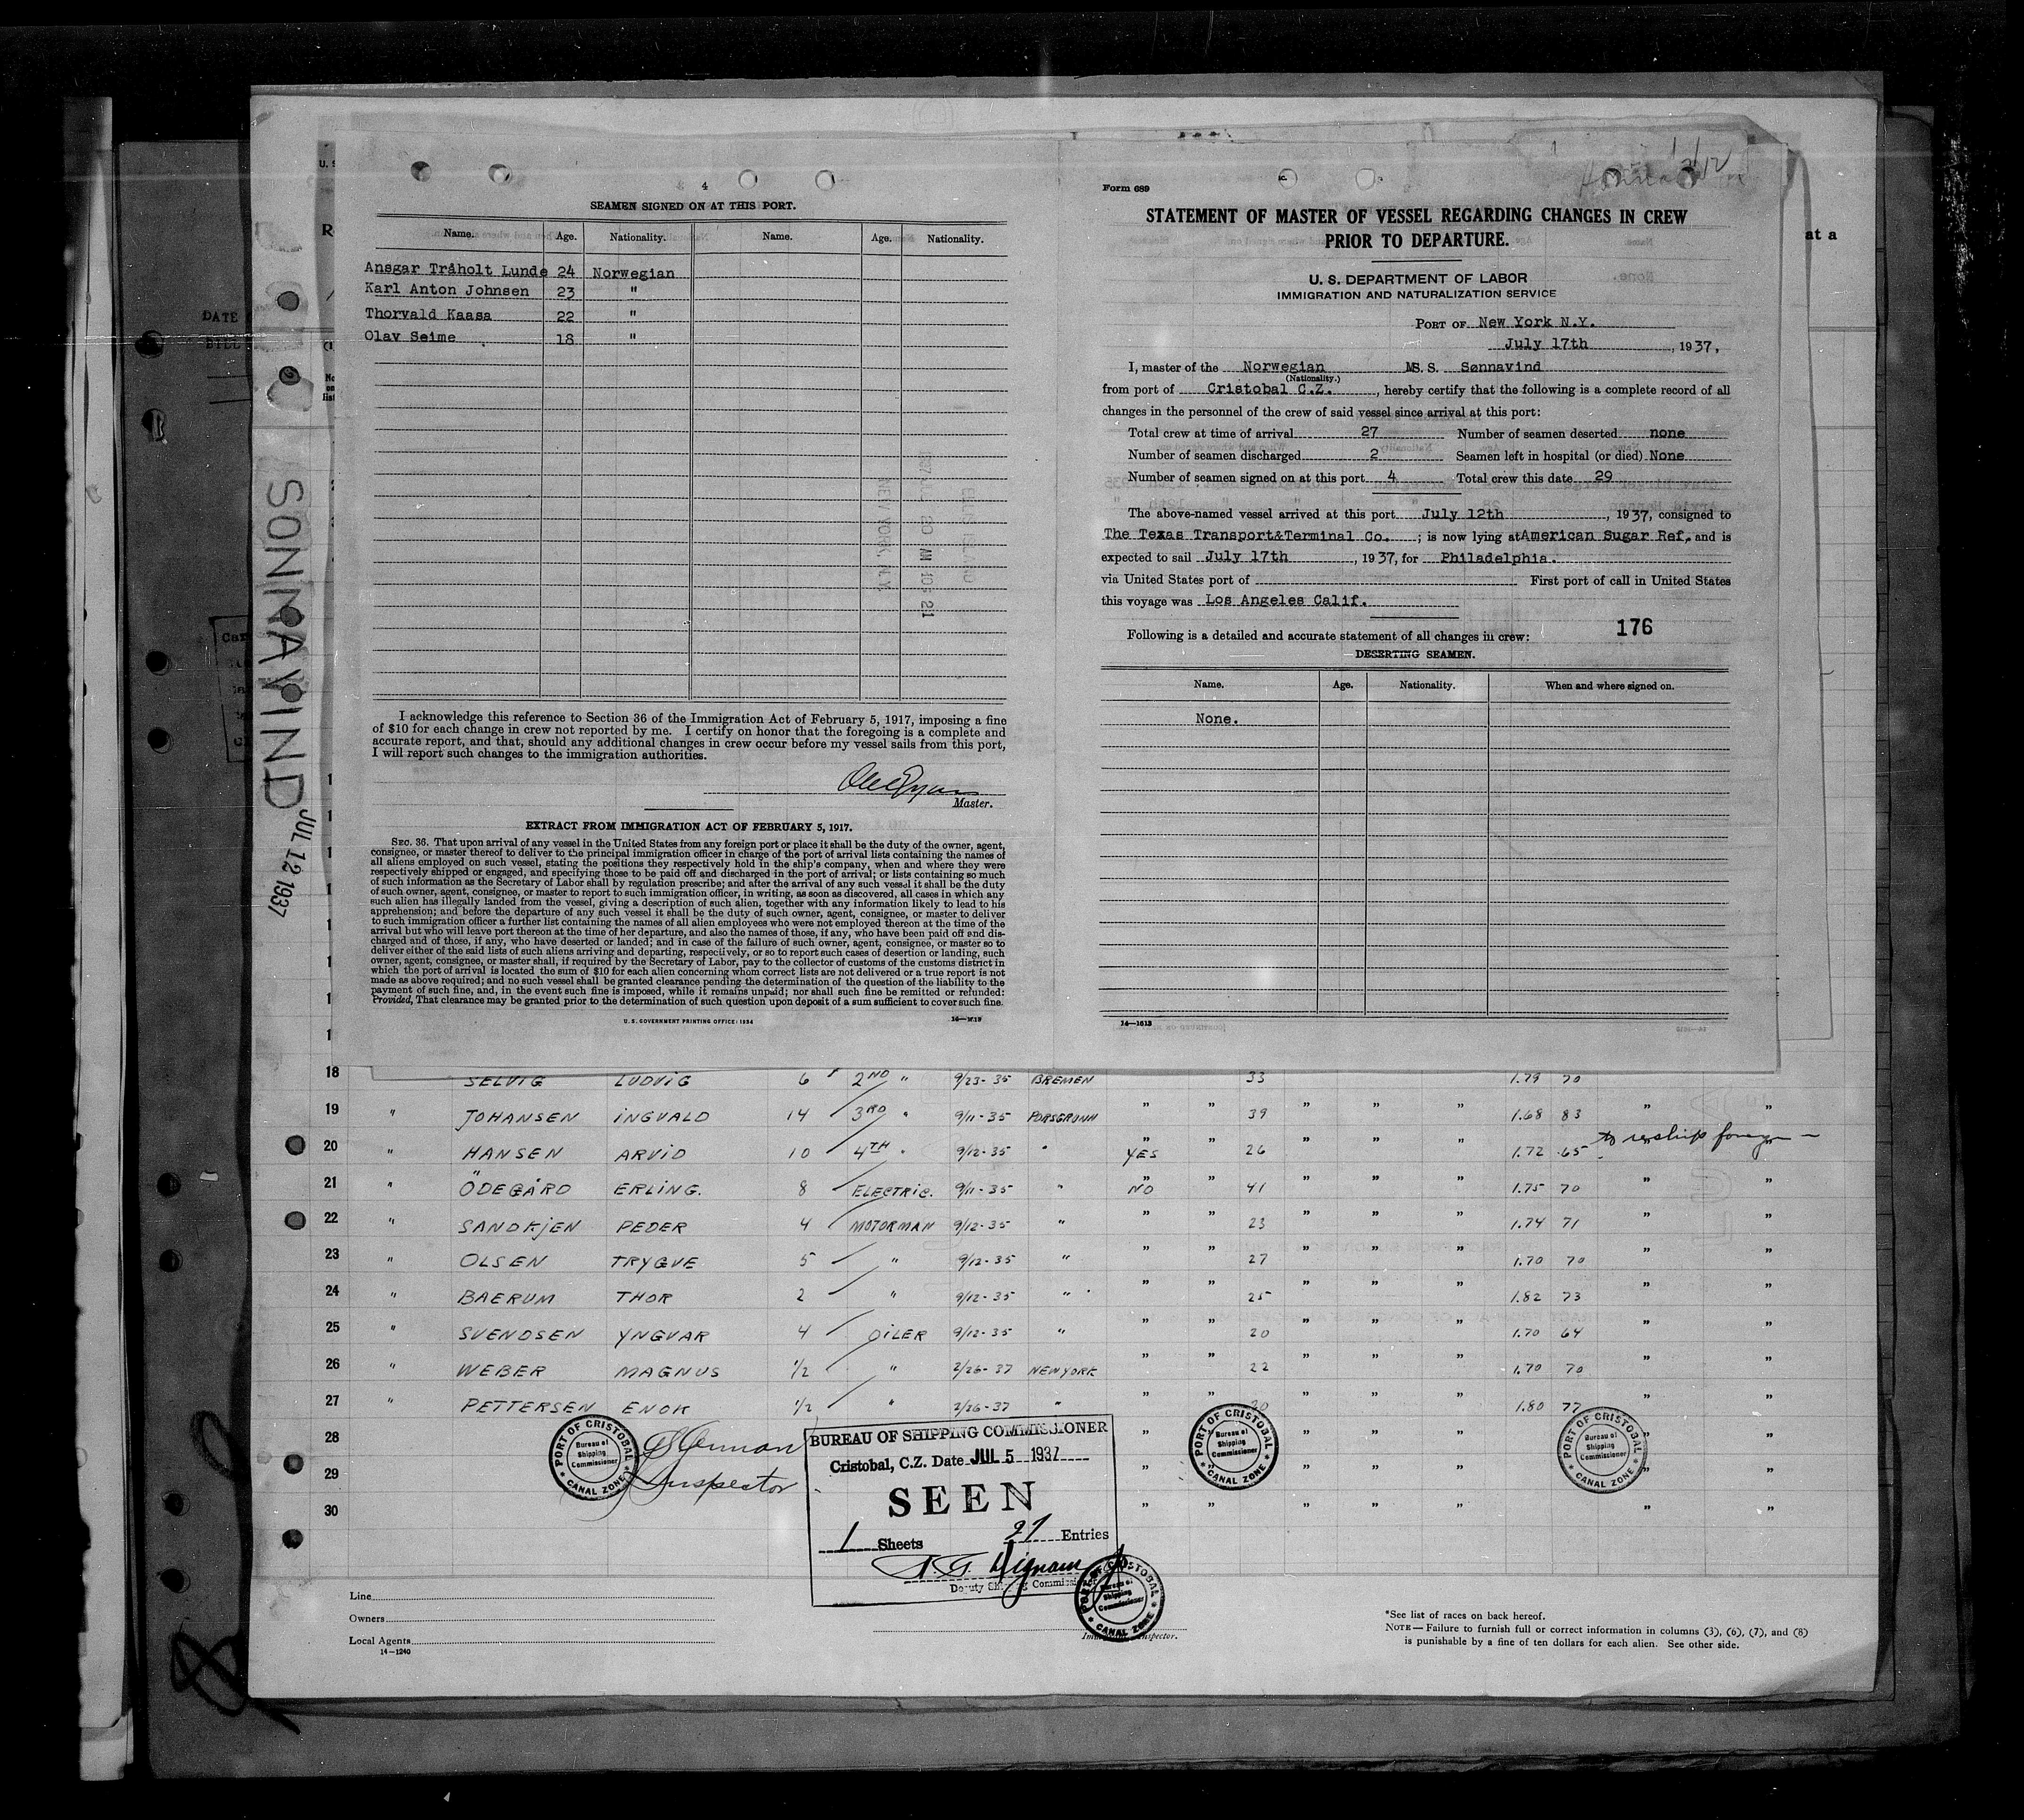 4
SEAMEN SIGNED ON AT THIS PORT.
Name. Age. Nationality. Name. Age. Nationality.
Ansgar Tråholt Lunde 24 Norwegian
Karl Anton Johnsen 23 "
Thorvald Kaasa 22 "
Olav Seime 18 "
I acknowledge this reference to Section 36 of the Immigration Act of February 5, 1917, imposing a fine
of $10 for each change in crew not reported by me. I certify on honor that the foregoing is a complete and
accurate report, and that, should any additional changes in crew occur before my vessel sails from this port,
I will report such changes to the immigration authorities.
Master.
EXTRACT FROM IMMIGRATION ACT OF FEBRUARY 5, 1917.
SEC. 36. That upon arrival of any vessel in the United States from any foreign port or place it shall be the duty of the owner, agent,
consignee, or master thereof to deliver to the principal immigration officer in charge of the port of arrival lists containing the names of
all aliens employed on such vessel, stating the positions they respectively hold in the ship's company, when and where they were
respectively shipped or engaged, and specifying those to be paid off and discharged in the port of arrival; or lists containing so much
of such information as the Secretary of Labor shall by regulation prescribe; and after the arrival of any such vessel it shall be the duty
of such owner, agent, consignee, or master to report to such immigration officer, in writing, as soon as discovered, all cases in which any
such alien has illegally landed from the vessel, giving a description of such alien, together with any information likely to lead to his
apprehension; and before the departure of any such vessel it shall be the duty of such owner, agent, consignee, or master to deliver
to such immigration officer a further list containing the names of all alien employees who were not employed thereon at the time of the
arrival but who will leave port thereon at the time of her departure, and also the names of those, if any, who have been paid off and dis-
charged and of those, if any, who have deserted or landed; and in case of the failure of such owner, agent, consignee, or master so to
deliver either of the said lists of such aliens arriving and departing, respectively, or so to report such cases of desertion or landing, such
owner, agent, consignee, or master shall, if required by the Secretary of Labor, pay to the collector of customs of the customs district in
which the port of arrival is located the sum of $10 for each alien concerning whom correct lists are not delivered or a true report is not
made as above required; and no such vessel shall be granted clearance pending the determination of the question of the liability to the
payment of such fine, and, in the event such fine is imposed, while it remains unpaid; nor shall such fine be remitted or refunded:
Provided, That clearance may be granted prior to the determination of such question upon deposit of a sum sufficient to cover such fine.
U.S. GOVERNMENT PRINTING OFFICE: 1934
Form 689
STATEMENT OF MASTER OF VESSEL REGARDING CHANGES IN CREW
PRIOR TO DEPARTURE.
U. S. DEPARTMENT OF LABOR
IMMIGRATION AND NATURALIZATION SERVICE
PORT OF New York N.Y.
July 17th, 1937,
I, master of the Norwegian MS. S. Sønnavind
(Nationality.)
from port of Cristobal C.Z., hereby certify that the following is a complete record of all
changes in the personnel of the crew of said vessel since arrival at this port:
Total crew at time of arrival 27 Number of seamen deserted none
Number of seamen discharged 2 Seamen left in hospital (or died) None
Number of seamen signed on at this port 4 Total crew this date 29
The above-named vessel arrived at this port July 12th, 1937, consigned to
The Texas Transport&Terminal Co.; is now lying at American Sugar Ref. and is
expected to sail July 17th, 1937, for Philadelphia.
via United States port of First port of call in United States
this voyage was Los Angeles Calif.
176
Following is a detailed and accurate statement of all changes in crew:
DESERTING SEAMEN.
Name. Age. Nationality. When and where signed on.
None.
14—1613
at a
SONNAVIND
JUL 12 1937
18 SELVIG LUDVIG 6 2ND " 9/23-35 BREMEN 33 1.79 70
19 " JOHANSEN INGVALD 14 3RD " 9/11-35 PORSGRUNN " " 39 " " " 1.68 83 " "
20 " HANSEN ARVID 10 4TH " 9/12-35 " YES " 26 " " " 1.72 65 to reship foreign
21 " ÖDEGÅRD ERLING. 8 ELECTRIC. 9/11-35 " NO " 41 " " " 1.75 70 " "
22 " SANDKJEN PEDER 4 MOTORMAN 9/12-35 " " " 23 " " " 1.74 71 " "
23 " OLSEN TRYGVE 5 " 9/12-35 " " " 27 " " " 1.70 70 " "
24 " BAERUM THOR 2 " 9/12-35 " " " 25 " " " 1.82 73 " "
25 " SVENDSEN YNGVAR 4 OILER 9/12-35 " " " 20 " " " 1.70 64 " "
26 " WEBER MAGNUS 1/2 " 2/26-37 NEW YORK " " 22 " " " 1.70 70 " "
27 " PETTERSEN ENOK 1/2 " 2/26-37 " " " 20 " " " 1.80 77 " "
28 " " " " " " "
29 " " " " "
30 " " " " " " "
Inspector
PORT OF CRISTOBAL
Bureau of
Shipping
Commissioner
CANAL ZONE
BUREAU OF SHIPPING COMMISSIONER
Cristobal, C.Z. Date JUL 5 1937
SEEN
1 Sheets 27 Entries
Deputy Shipping Commissioner
PORT OF CRISTOBAL
Bureau of
Shipping
Commissioner
CANAL ZONE
PORT OF CRISTOBAL
Bureau of
Shipping
Commissioner
CANAL ZONE
PORT OF CRISTOBAL
Bureau of
Shipping
Commissioner
CANAL ZONE
Line
Owners
Local Agents
14—1240
Inspector.
*See list of races on back hereof.
NOTE — Failure to furnish full or correct information in columns (3), (6), (7), and (8)
is punishable by a fine of ten dollars for each alien. See other side.